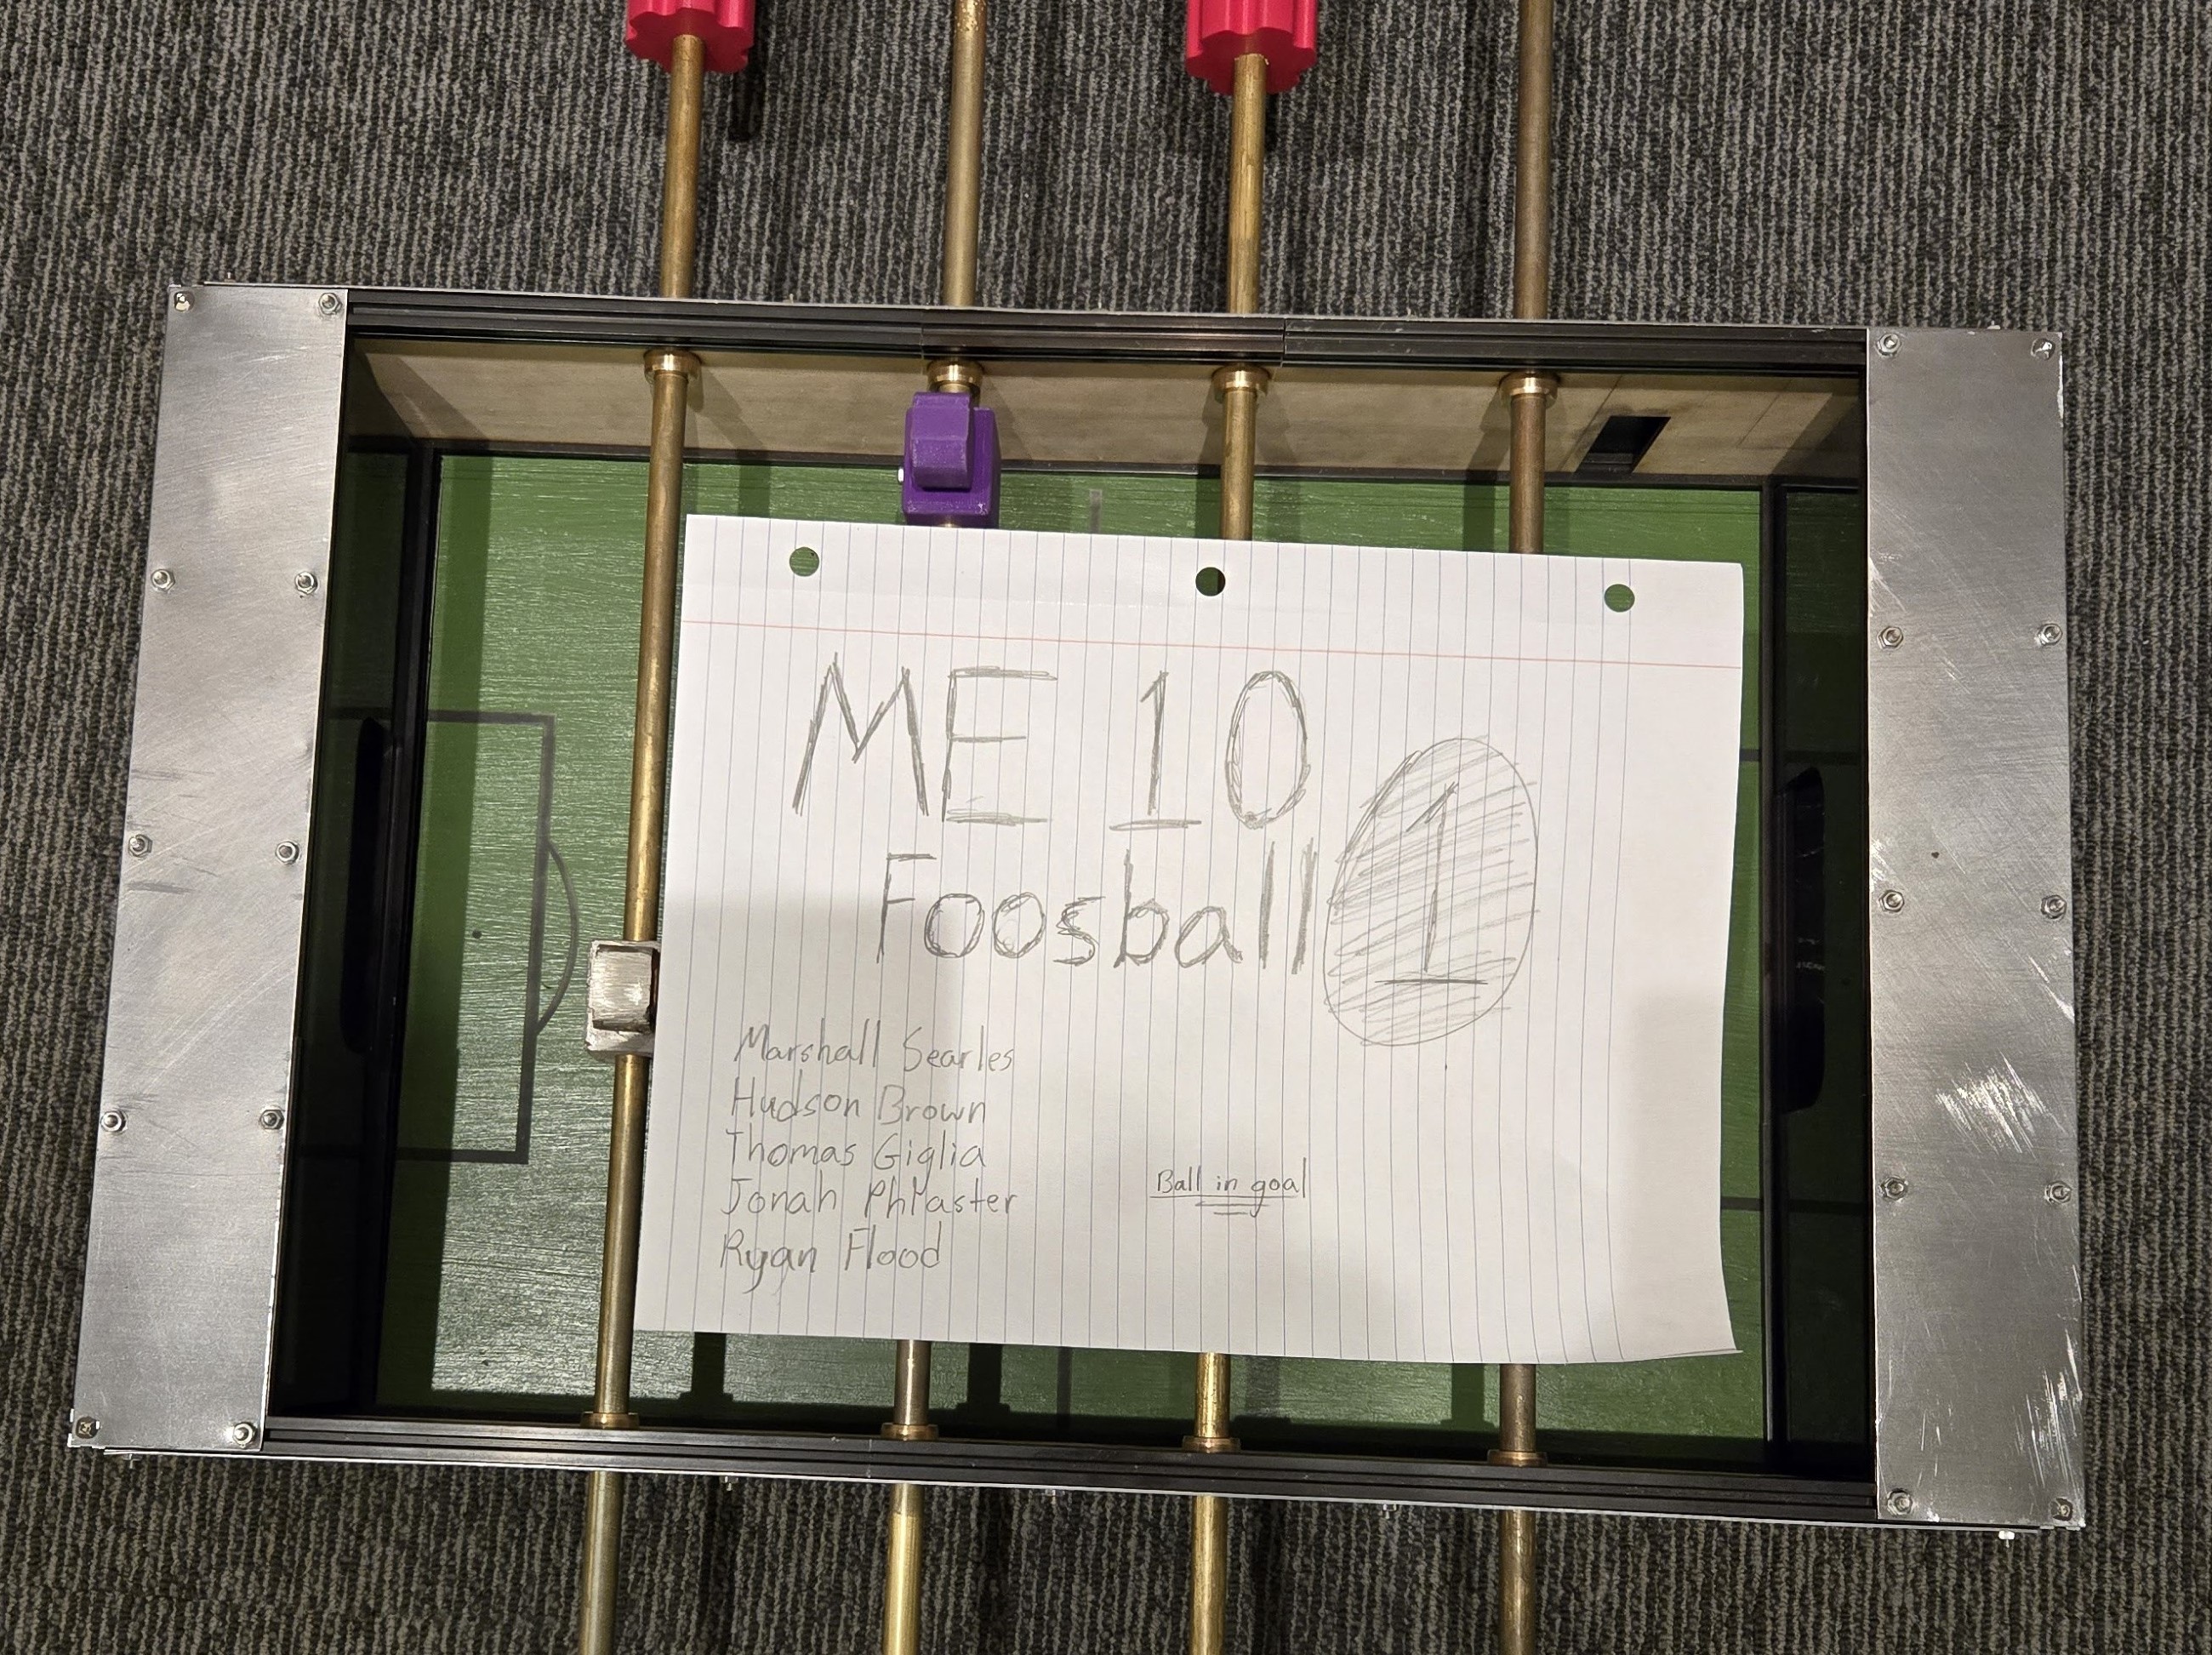 ME 10
Foosball
1
Marshall Searles
Hudson Brown
Thomas Giglia
Jonah PhMaster
Ryan Flood
Ball in goal